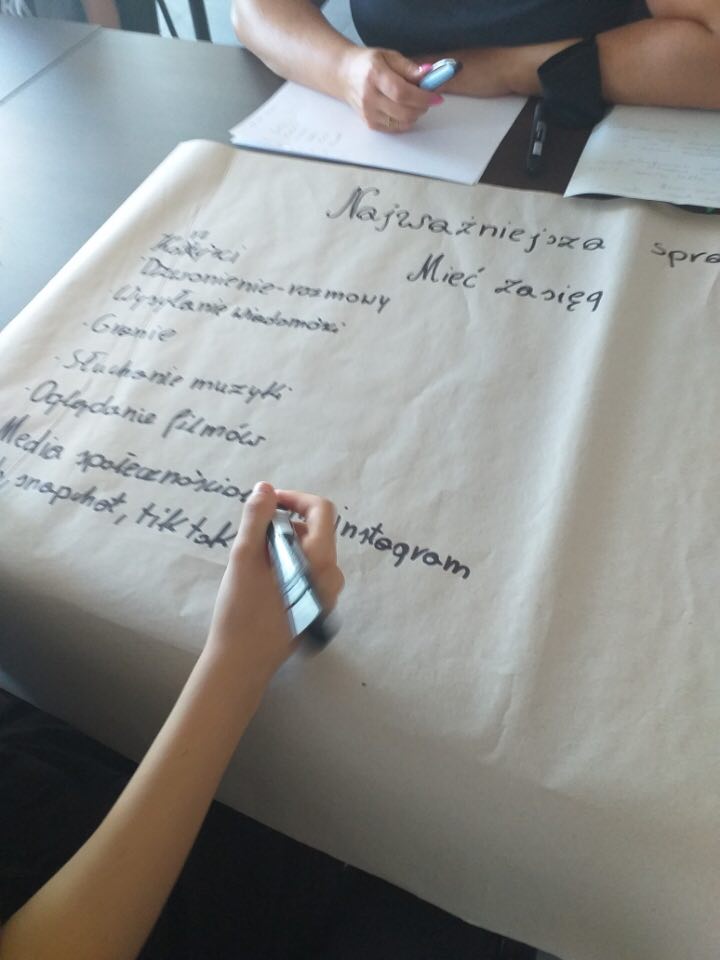 Najważniejsza spra
Mieć zasięg
Dzwonienie-rozmowy
Wysyłanie wiadomości
·Granie
·Słuchanie muzyki
·Oglądanie filmów
Media instagram
snapchat, tik tok